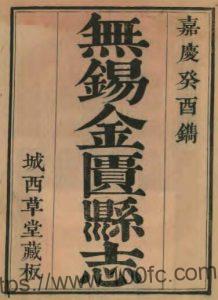 嘉慶癸酉鐫
無錫金匱縣志
城西草堂藏板
https://www.1700fc.com